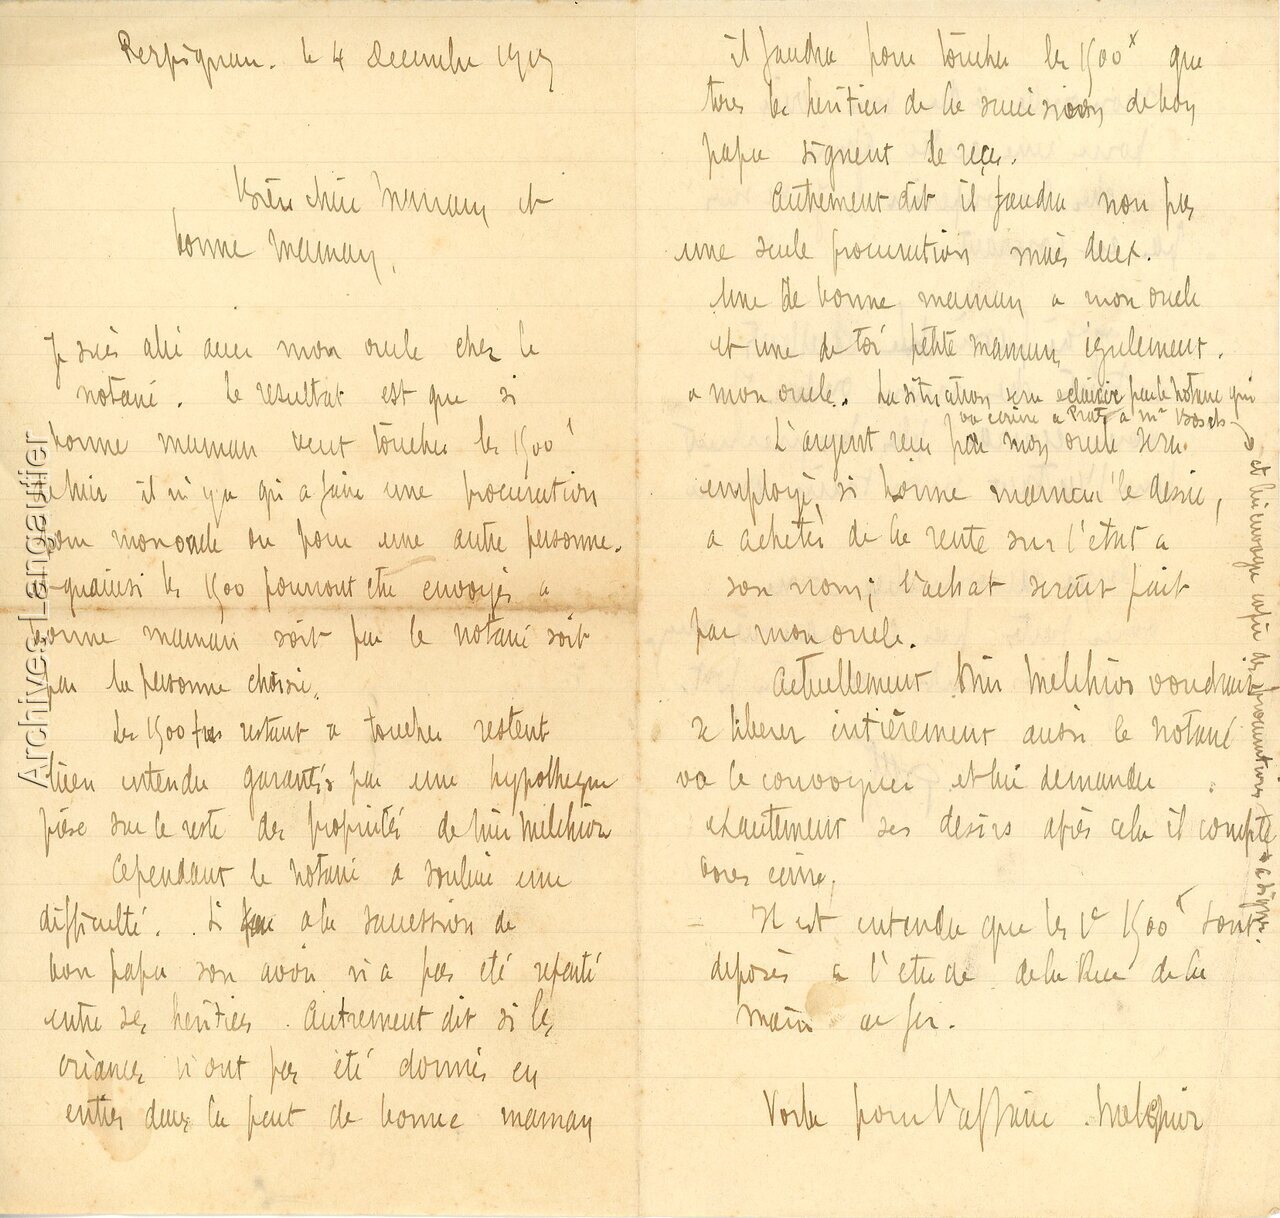 Perpignan. le 4 Decembre
bonne maman,
Je suis allé avec mon oncle chez le
notaire. Le resultat est que si
bonne maman veut toucher les 1500 f
il n'y a qu'a faire une procuration
pour mon oncle ou pour une autre personne.
les 1500 pourront etre envoyés a
bonne maman soit par le notaire soit
par la personne choisie.
Les 1500 frs restant a toucher restent
bien entendu garantis par une hypotheque
prise sur le reste des propriétés de Melchior
Cependant le notaire a soulevé une
difficulté. Si a la succession de
bon papa son avoir n'a pas été reparti
entre ses heritiers. Autrement dit si les
créances n'ont pas été données en
entier dans la part de bonne maman
il faudra pour toucher les 1500 f que
tous les heritiers de la succession de bon
papa signent le reçu.
Autrement dit il faudra non pas
une seule procuration mais deux.
Une de bonne maman a mon oncle
et une de toi petite maman, egalement
a mon oncle. La situation sera eclaircie par le notaire qui
va ecrire a Prats a Mr
et lui envoyer des procurations a signer.
L'argent reçu par mon oncle sera
employé, si bonne maman le desire,
a acheter de la rente sur l'etat a
son nom; l'achat serait fait
par mon oncle.
Actuellement Melchior voudrait
se liberer entièrement aussi le notaire
va le convoquer et lui demander
exactement ses desirs après cela il compte
vous ecrire.
Il est entendu que les 1500 f sont
deposés a l'etude de la Rue de la
main de fer.
Voila pour l'affaire Melchior
Archives-Langautier